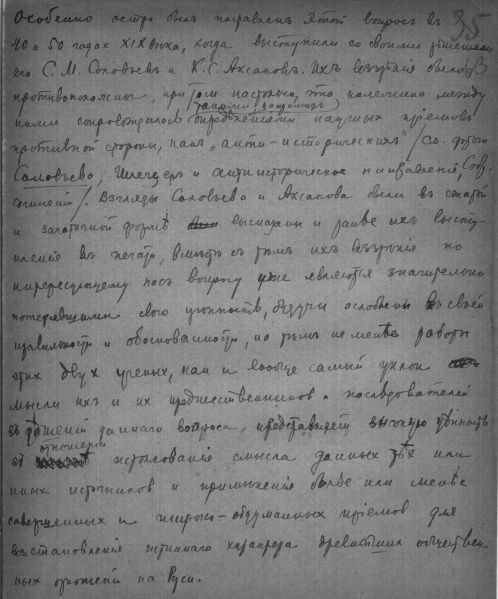 Особенно остро былъ поставленъ этотъ вопросъ въ 35
40 и 50 годахъ XIX вѣка, когда выступили со своими рѣшеніями
его С. М. Соловьевъ и К. С. Аксаковъ. Ихъ воззрѣнія были
противоположны, при томъ настолько, что полемика между
ними сопровождалась опредѣленіями научныхъ пріемовъ
противной стороны, какъ "анти-историческихъ" /См. статью
Соловьева, Шлецеръ и антиисторическое направленіе, Собр.
сочиненій/. Взгляды Соловьева и Аксакова были въ сжатой
и зачаточной формѣ высказаны и ранѣе ихъ выступ-
леній въ печати, вмѣстѣ съ тѣмъ ихъ воззрѣнія по
интересующему насъ вопросу уже являются значительно
потерявшими свою цѣнность, будучи ослаблены въ своей
правильности и обоснованности, но тѣмъ не менѣе работы
этихъ двухъ ученыхъ, какъ и вообще самый уклонъ
мысли ихъ и ихъ предшественниковъ и послѣдователей
въ рѣшеніи даннаго вопроса, представляетъ высокую цѣнность
въ отношеніи истолкованія смысла данныхъ тѣхъ или
иныхъ источниковъ и примѣненія болѣе или менѣе
совершенныхъ и широко-обдуманныхъ пріемовъ для
возстановленія истиннаго характера древнѣйшихъ обществен-
ныхъ отношеній на Руси.